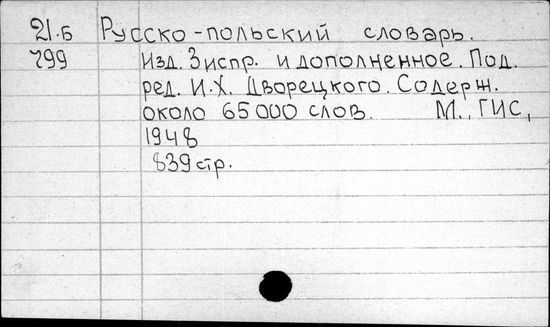 21.Б Русско-польский словарь.
799 Изд. 3 испр. и дополненное. Под.
ред. И.Х. Дворецкого. Содерж.
около 65000 слов. М., ГИС,
1948
839 стр.